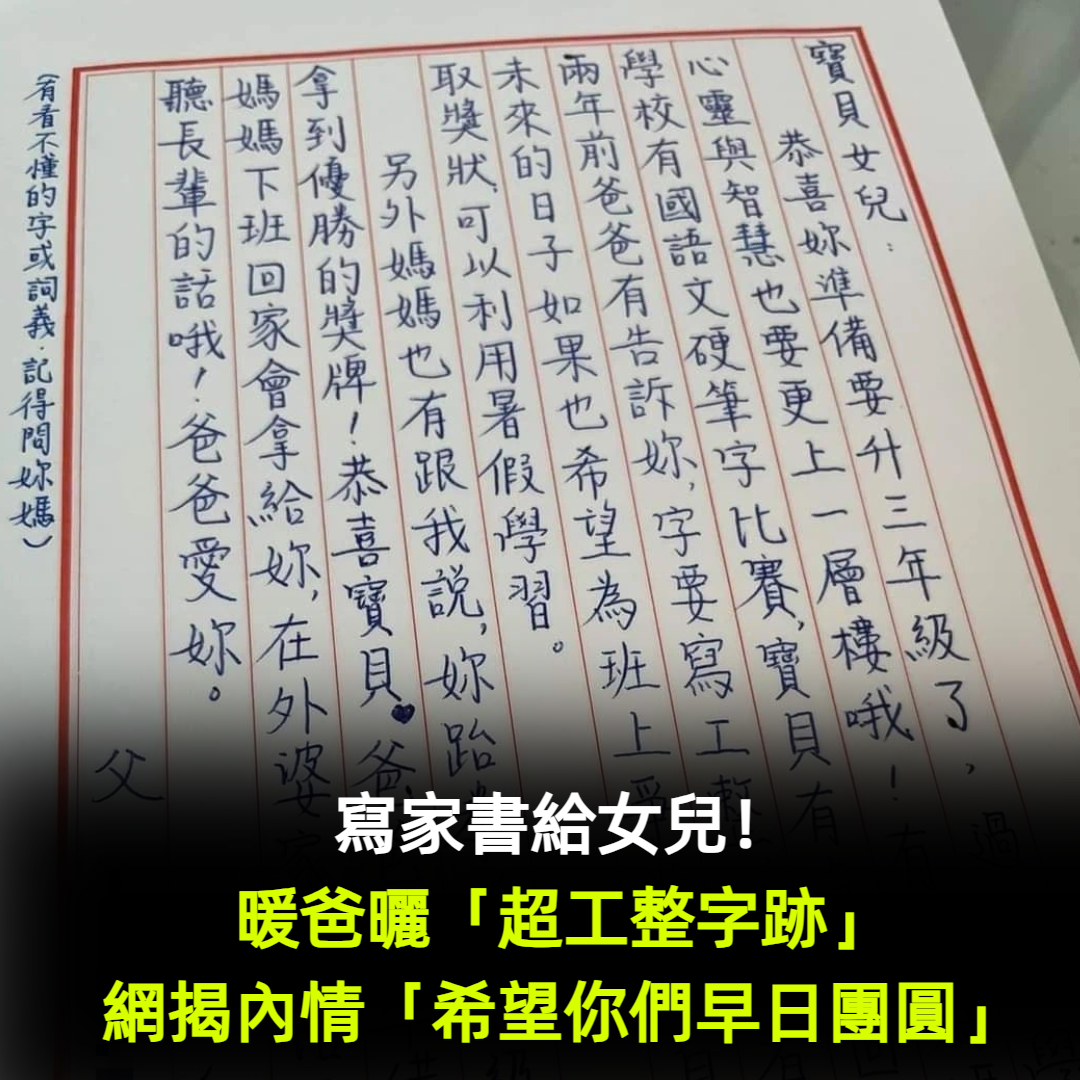 寶貝女兒：
恭喜妳準備要升三年級了，過
心靈與智慧也要更上一層樓哦！有
學校有國語文硬筆字比賽，寶貝有
兩年前爸爸有告訴妳，字要寫工整
未來的日子如果也希望為班上爭
取獎狀，可以利用暑假學習。
另外媽媽也有跟我說，妳跆
拿到優勝的獎牌！恭喜寶貝♥爸
媽媽下班回家會拿給妳，在外婆家
聽長輩的話哦！爸爸愛妳。
父
（有看不懂的字或詞義．記得問妳媽）
寫家書給女兒！
暖爸曬「超工整字跡」
網揭內情「希望你們早日團圓」